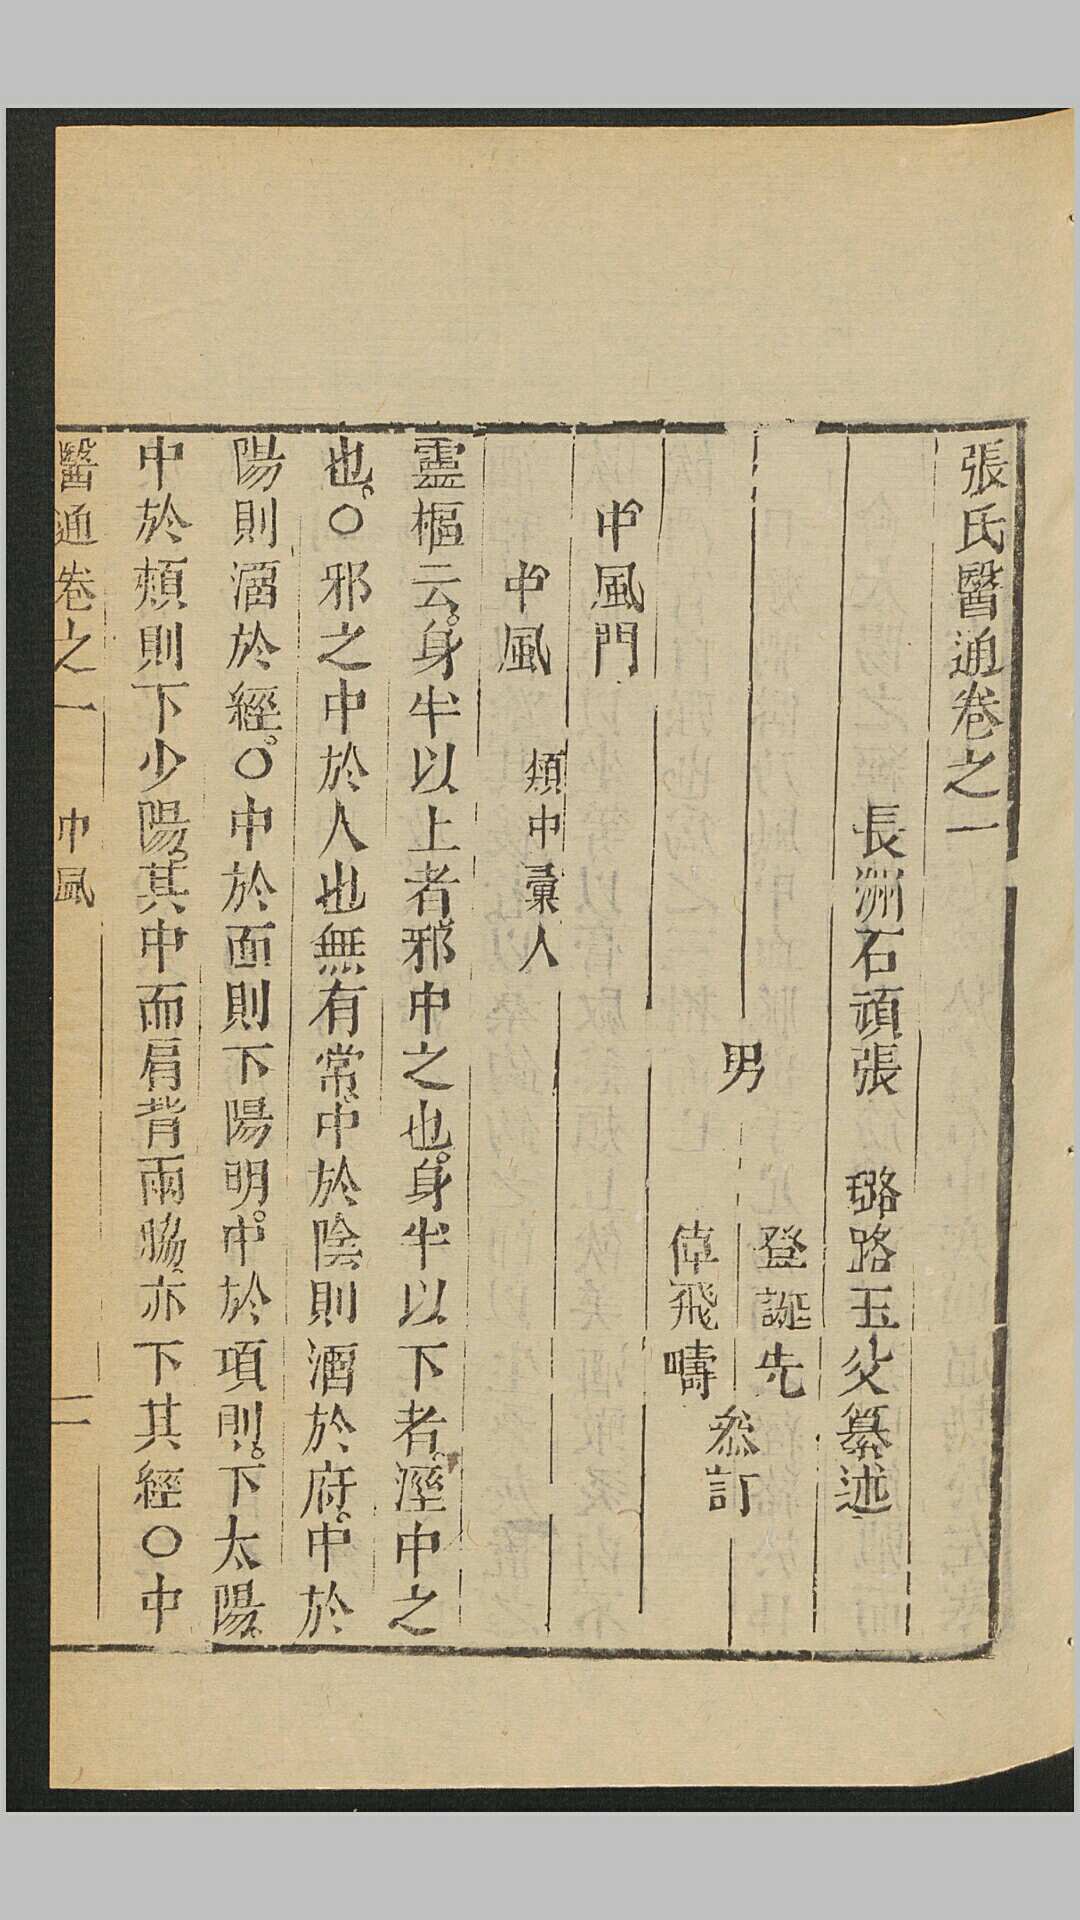 張氏醫通卷之一
長洲石頑張 璐路玉父纂述
男
登誕先
倬飛疇
參訂
中風門
中風 類中彙入
靈樞云。身半以上者。邪中之也。身半以下者。溼中之
也。○邪之中於人也無有常。中於陰則溜於府。中於
陽則溜於經。○中於面則下陽明。中於項則。下太陽。
中於頰則下少陽。其中而肩背兩脇。亦下其經○中
醫通卷之一 中風 一